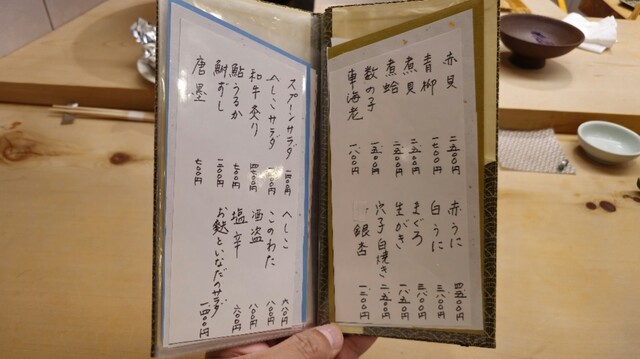 赤貝 二、五〇〇円
青柳 一、七〇〇円
煮貝 二、五〇〇円
煮蛤 二、五〇〇円
数の子 一、五〇〇円
車海老 一、八〇〇円
赤うに 四、五〇〇円
白うに 三、八〇〇円
まぐろ 三、八〇〇円
生がき 一、八五〇円
穴子白焼き 二、五〇〇円
銀杏 一、二〇〇円
スプーンサラダ
へしこサラダ
和牛炙り
鮎うるか 七〇〇円
鮒ずし
唐墨 七〇〇円
へしこ 六八〇円
このわた 八〇〇円
酒盗 八〇〇円
塩辛 六〇〇円
お麩といなだのサラダ 一、四〇〇円